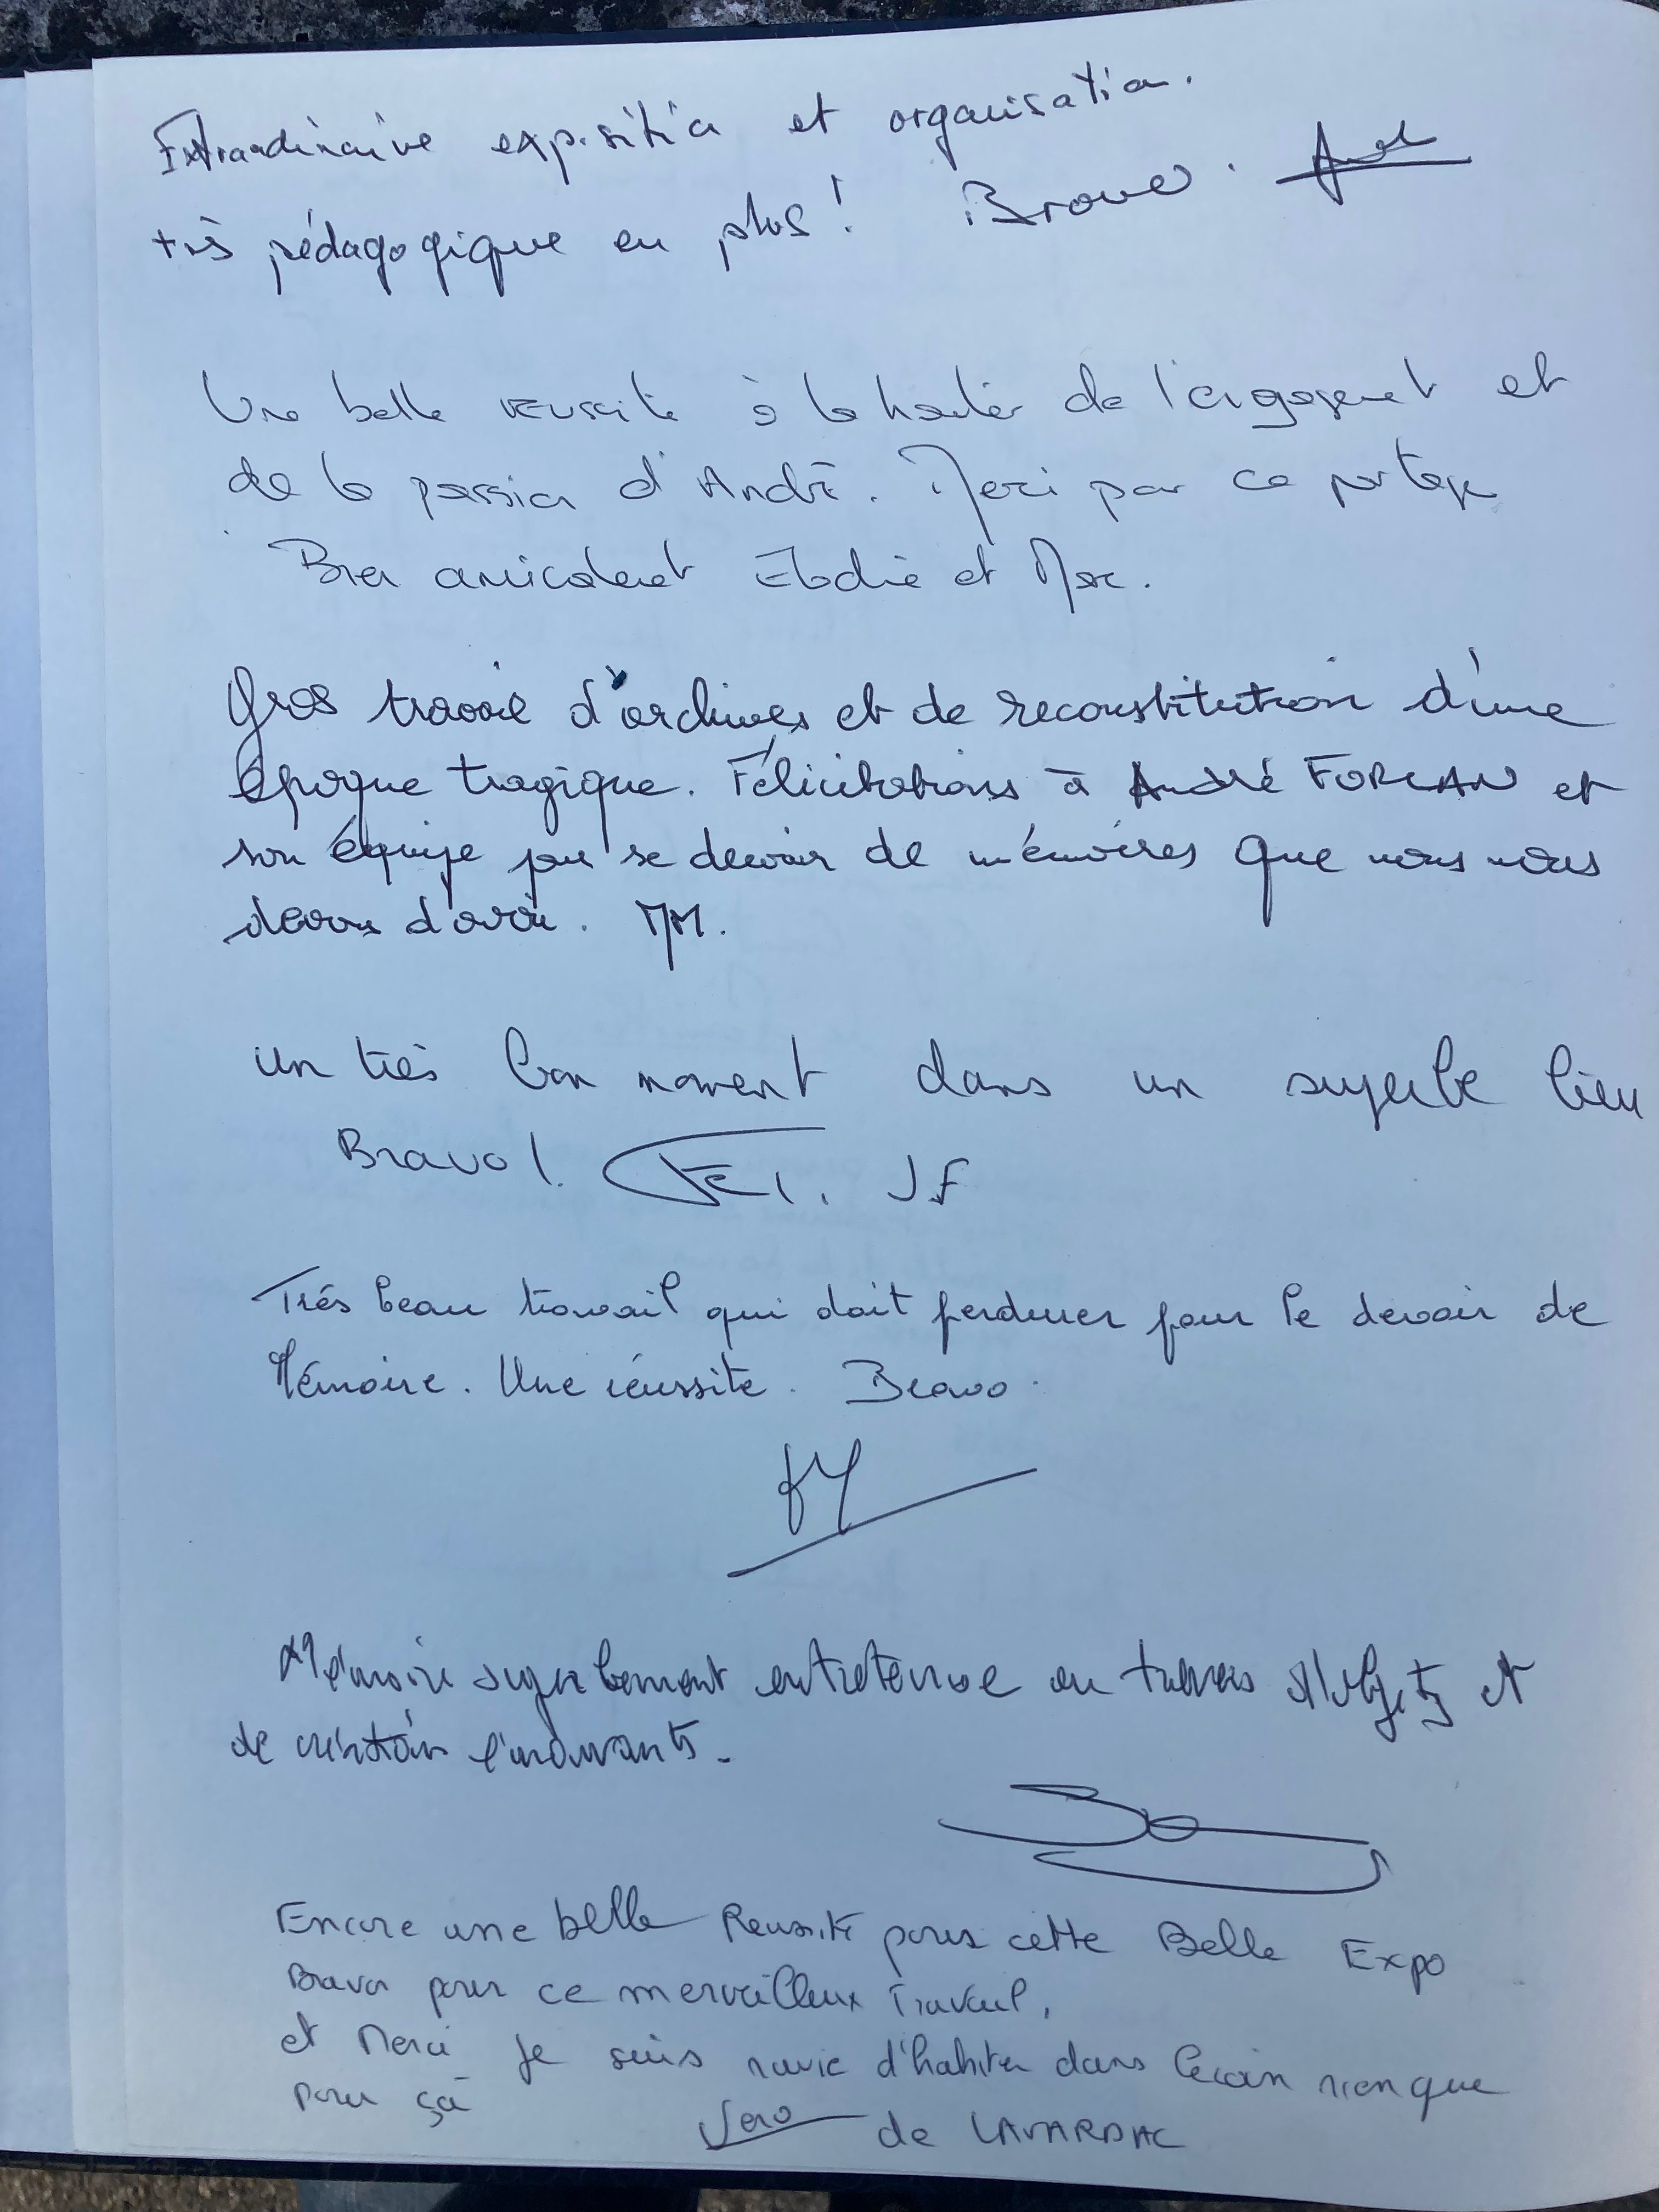 Extraordinaire exposition et organisation.
très pédagogique en plus ! Bravo.
Une belle réussite à la hauteur de l'engagement et
de la passion d'André. Merci pour ce partage
Bien amicalement Elodie et Marc.
Gros travail d'archives et de reconstitution d'une
époque tragique. Félicitations à André FORCAN et
son équipe pour se devoir de mémoires que nous nous
devons d'avoir. MM.
Un très bon moment dans un superbe lieu
Bravo ! JF
Très beau travail qui doit perdurer pour le devoir de
Mémoire. Une réussite. Bravo.
Mémoire superbement entretenue au travers d'objets et
de créations émouvants.
Encore une belle Réussite pour cette Belle Expo
Bravo pour ce merveilleux Travail,
et Merci je suis ravie d'habiter dans le coin rien que
pour çà
Vero de LAVARDAC